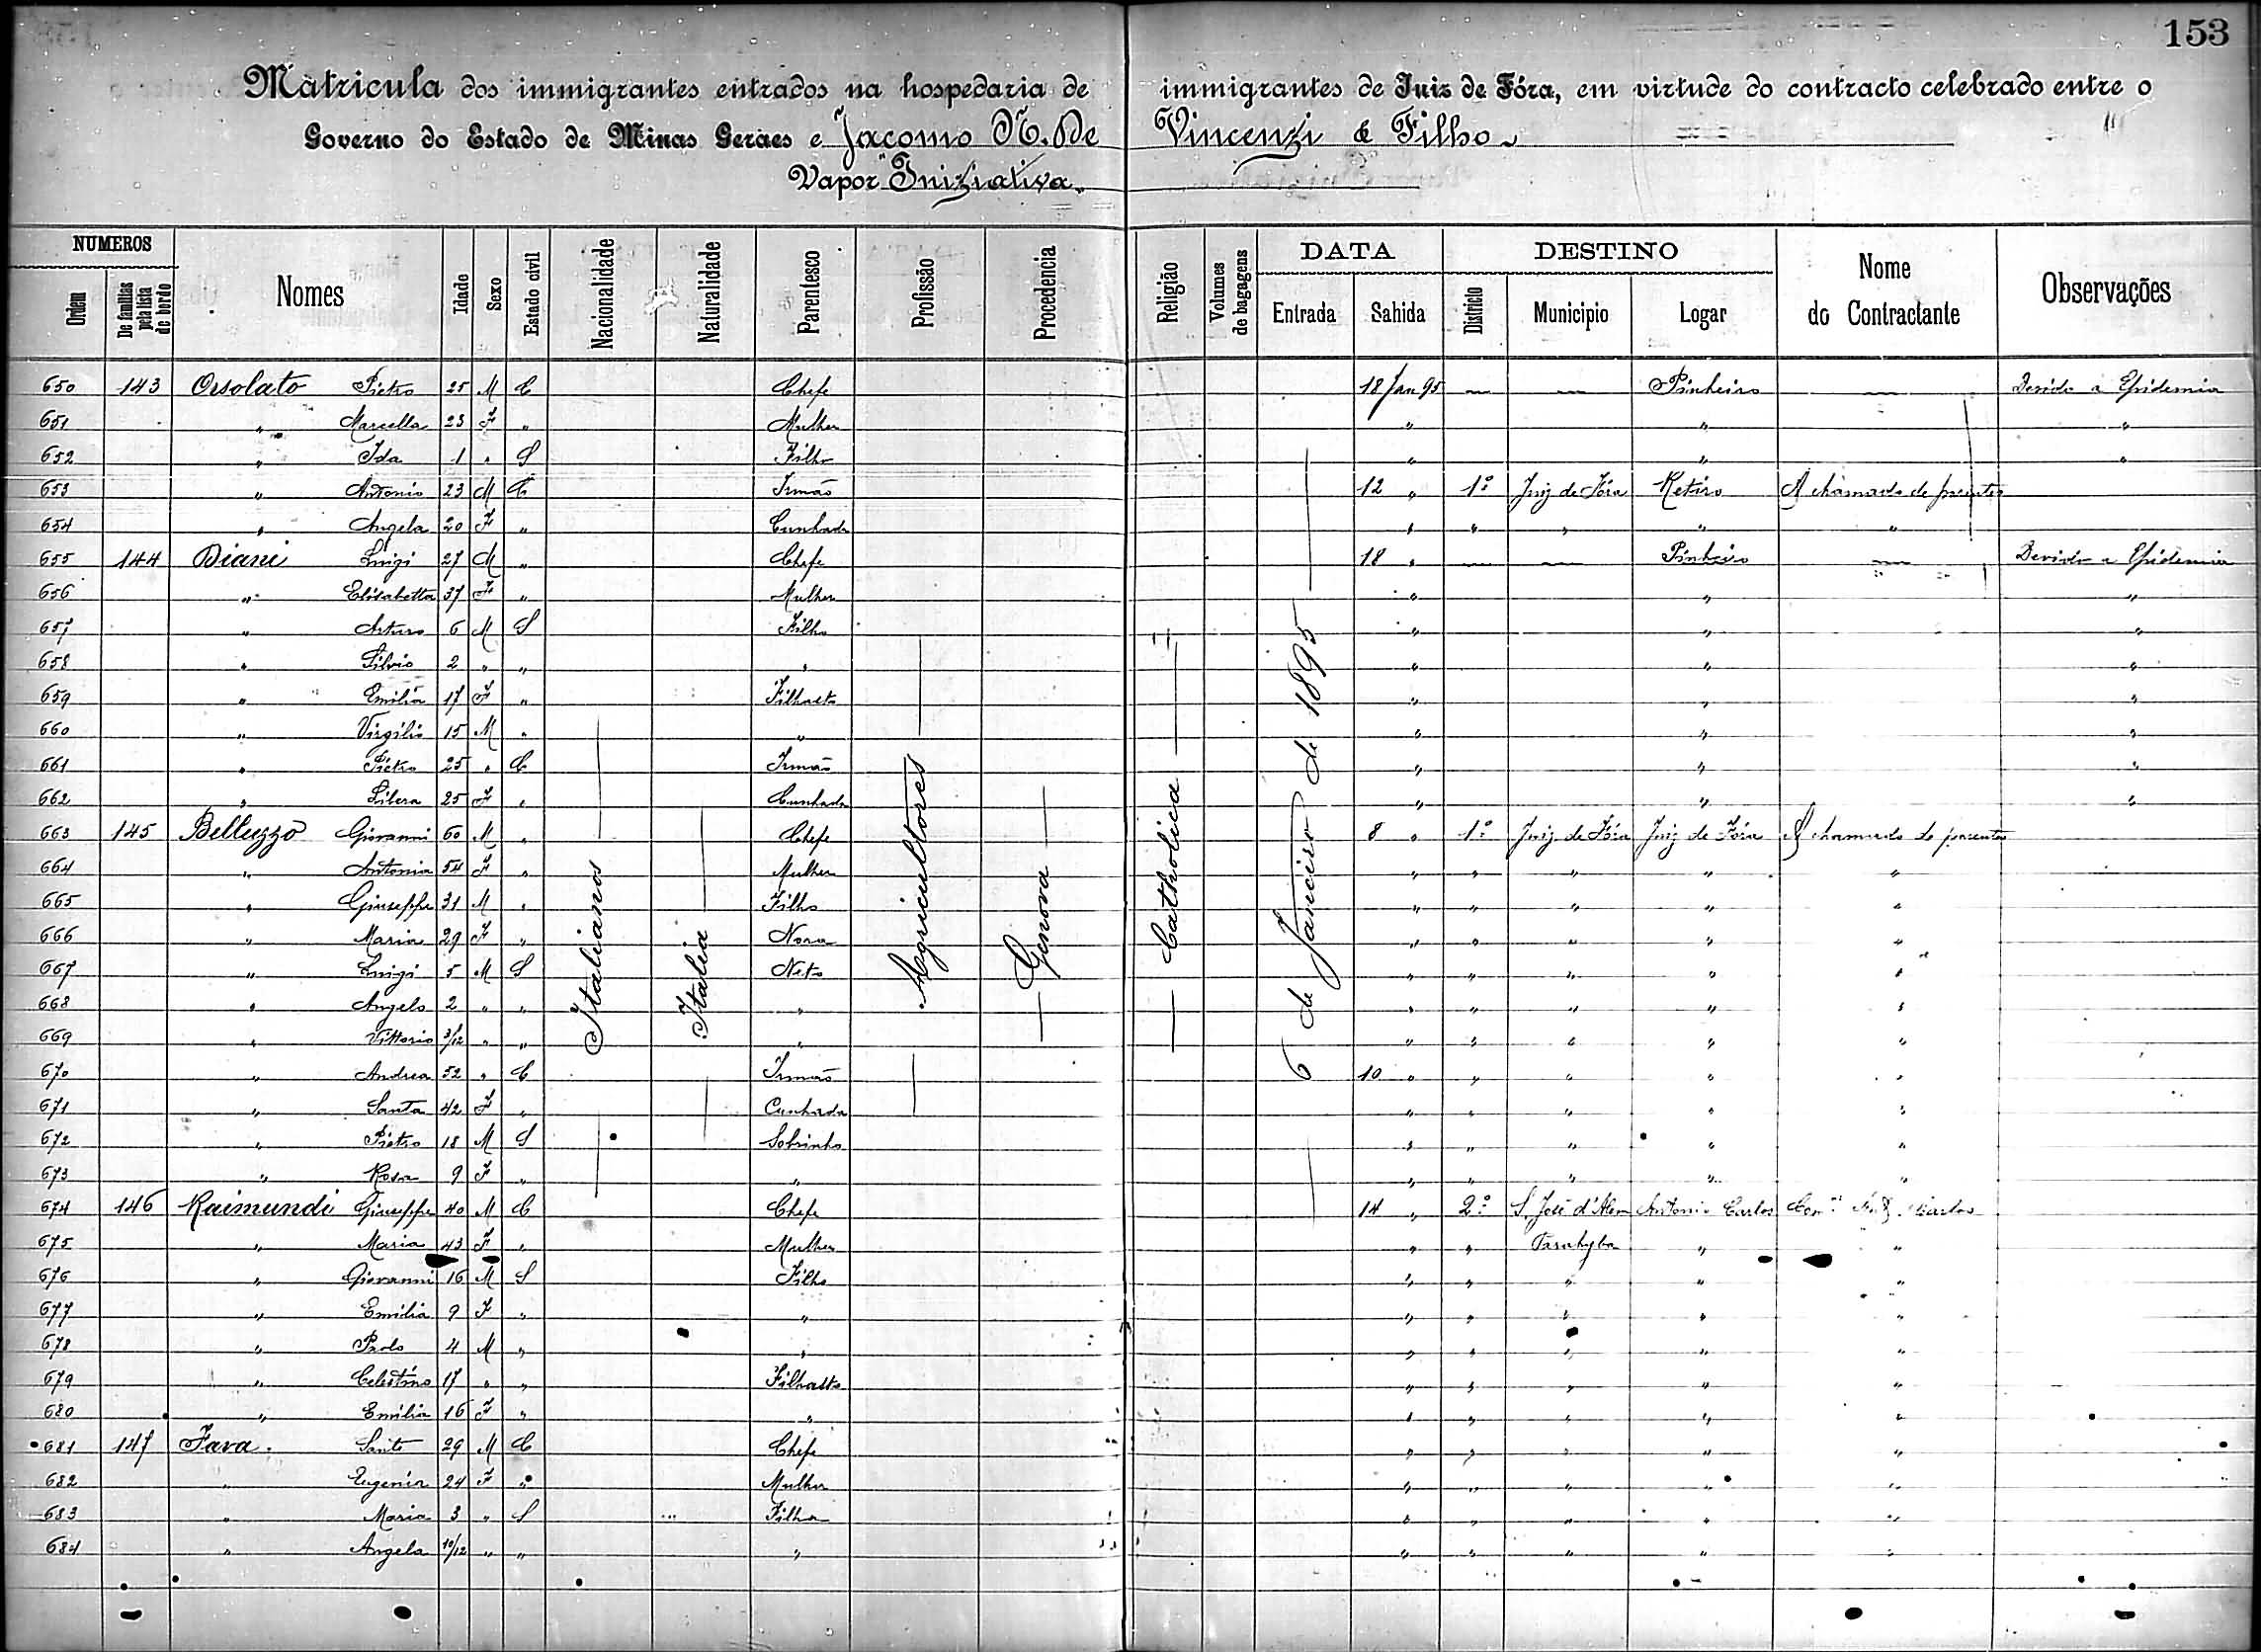 153
Matricula dos immigrantes entrados na hospedaria de immigrantes de Juiz de Fóra, em virtude do contracto celebrado entre o
Governo do Estado de Minas Geraes e Jacomo N. De Vincenzi & Filho
Vapor "Iniziativa.
NUMEROS Nomes Idade Sexo Estado civil Nacionalidade Naturalidade Parentesco Profissão Procedencia Religião Volumes de bagagens DATA DESTINO Nome do Contractante Observações
Ordem De familias pela lista de bordo Entrada Sahida Districto Municipio Logar
Italianos
Italia
Agricultores
Genova
Catholica
6 de Janeiro de 1895
650 143 Orsolato Pietro 25 M C Chefe 18 Jan 95 — — Pinheiro — Devido a Epidemia
651 " Marcella 23 F " Mulher " " "
652 " Ida 1 " S Filho " " "
653 " Antonio 23 M C Irmão 12 " 1º Juiz de Fóra Retiro A chamado de parentes
654 " Angela 20 F " Cunhada " " " " "
655 144 Diani Luigi 27 M " Chefe 18 " — — Pinheiro — Devido a Epidemia
656 " Elisabetta 37 F " Mulher " " "
657 " Arturo 6 M S Filho " " "
658 " Silvio 2 " " " " " "
659 " Emilia 17 F " Filhasto " " "
660 " Virgilio 15 M " " " " "
661 " Pietro 25 " C Irmão " " "
662 " Libera 25 F " Cunhada " " "
663 145 Belluzzo Giovanni 60 M " Chefe 8 " 1º Juiz de Fóra Juiz de Fóra A chamado de parentes
664 " Antonia 54 F " Mulher " " " " "
665 " Giuseppe 31 M " Filho " " " " "
666 " Maria 29 F " Nora " " " " "
667 " Luigi 5 M S Neto " " " " "
668 " Angelo 2 " " " " " " " "
669 " Vittorio 3/12 " " " " " " " "
670 " Andrea 52 " C Irmão 10 " " " " "
671 " Santa 42 F " Cunhada " " " " "
672 " Pietro 18 M S Sobrinho " " " " "
673 " Rosa 9 F " " " " " " "
674 146 Raimundi Giuseppe 40 M C Chefe 14 " 2º S. José d'Alem Antonio Carlos
675 " Maria 43 F " Mulher " " Parahyba " "
676 " Giovanni 16 M S Filho " " " " "
677 " Emilia 9 F " " " " " " "
678 " Paolo 4 M " " " " " " "
679 " Celestino 17 " " Filhasto " " " " "
680 " Emilia 16 F " " " " " " "
681 147 Fava Santi 29 M C Chefe " " " " "
682 " Eugenia 24 F " Mulher " " " " "
683 " Maria 3 " S Filha " " " " "
684 " Angela 10/12 " " " " " " " "